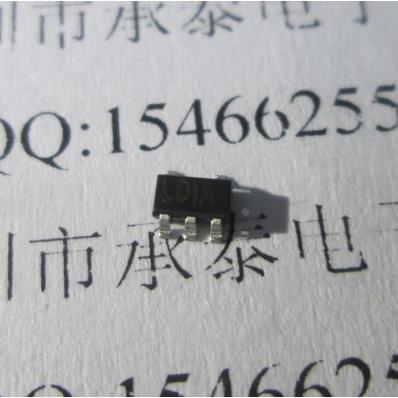 圳市承泰电子
QQ:15466255
LD1A
圳市承泰电子
QQ:15466255